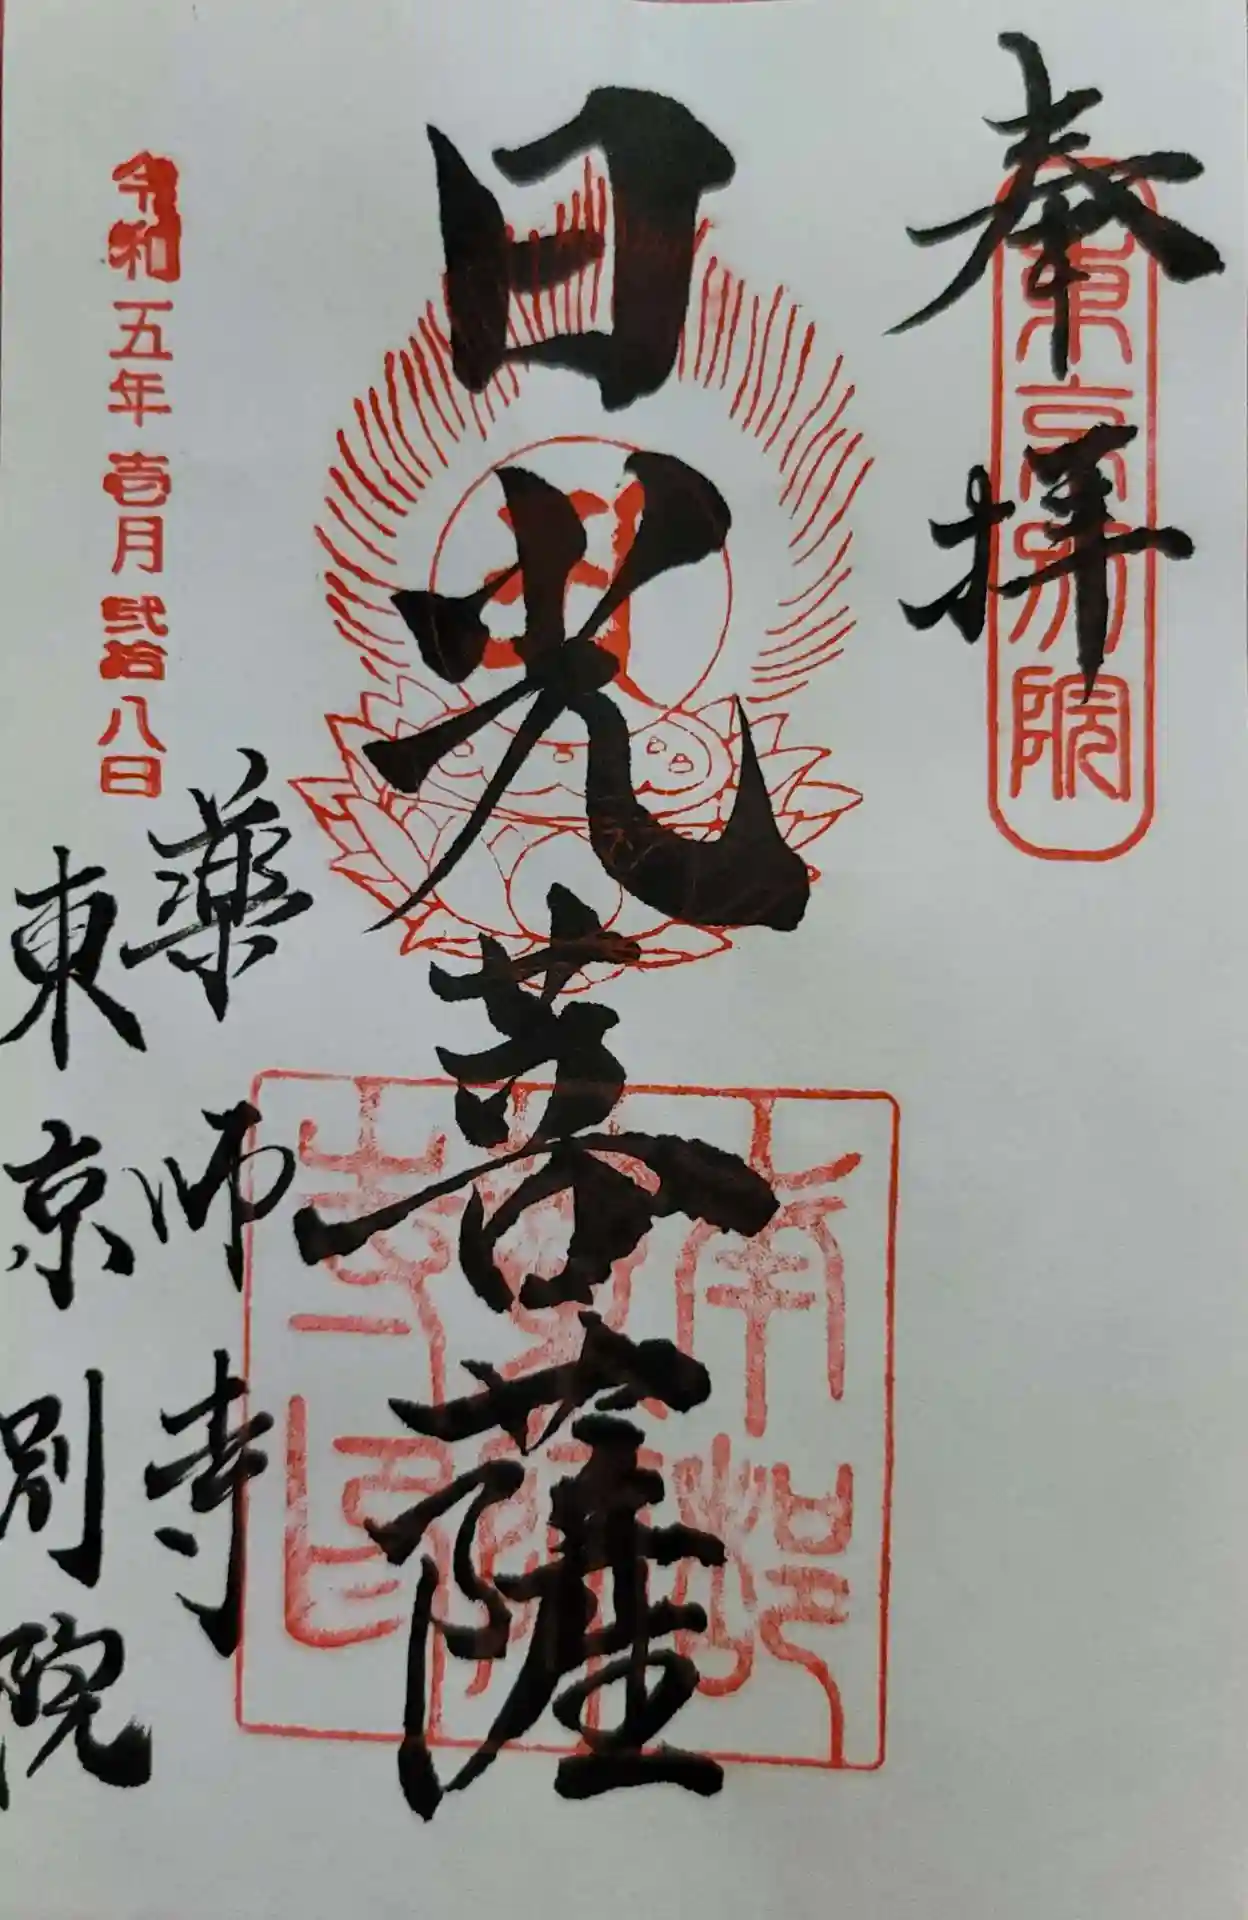 奉拝
東京別院
日光菩薩
令和五年壱月弐拾八日
薬師寺
東京別院